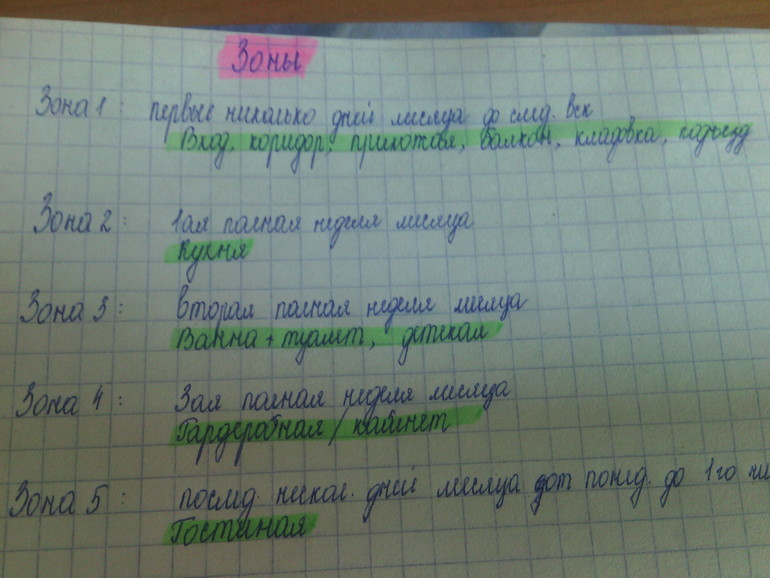 Зоны
Зона 1: первые нисколько дней месяца до след. вск
Вход, коридор, прихожая, балкон, кладовка, подъезд
Зона 2: 1ая полная неделя месяца
Кухня
Зона 3: вторая полная неделя месяца
Ванна + туалет, детская
Зона 4: 3ая полная неделя месяца
Гардеробная / кабинет
Зона 5: послед. нескол. дней месяца от понед. до 1го
Гостиная